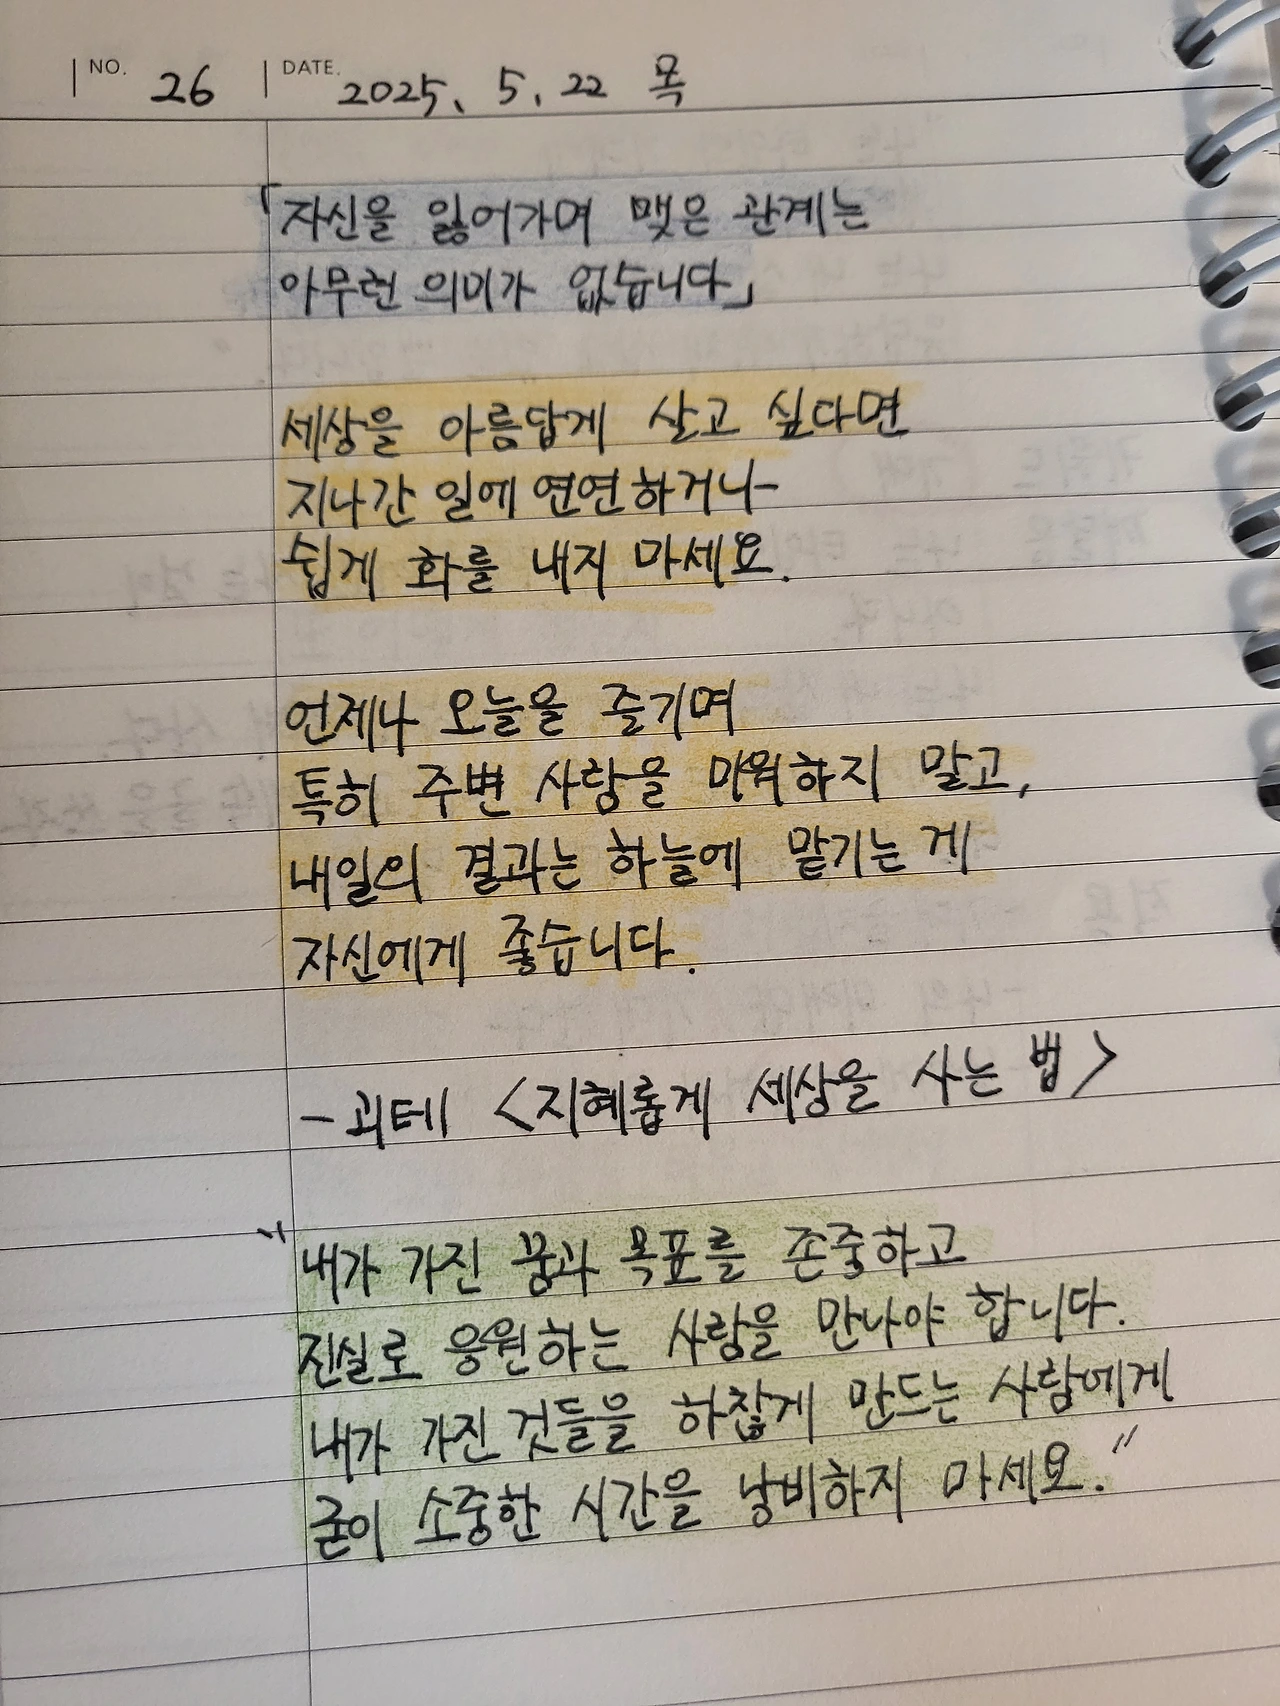 NO. 26 DATE. 2025. 5. 22 목
「자신을 잃어가며 맺은 관계는
아무런 의미가 없습니다」
세상을 아름답게 살고 싶다면
지나간 일에 연연하거나
쉽게 화를 내지 마세요.
언제나 오늘을 즐기며
특히 주변 사람을 미워하지 말고,
내일의 결과는 하늘에 맡기는 게
자신에게 좋습니다.
- 괴테 <지혜롭게 세상을 사는 법>
"내가 가진 꿈과 목표를 존중하고
진실로 응원하는 사람을 만나야 합니다.
내가 가진 것들을 하찮게 만드는 사람에게
굳이 소중한 시간을 낭비하지 마세요."